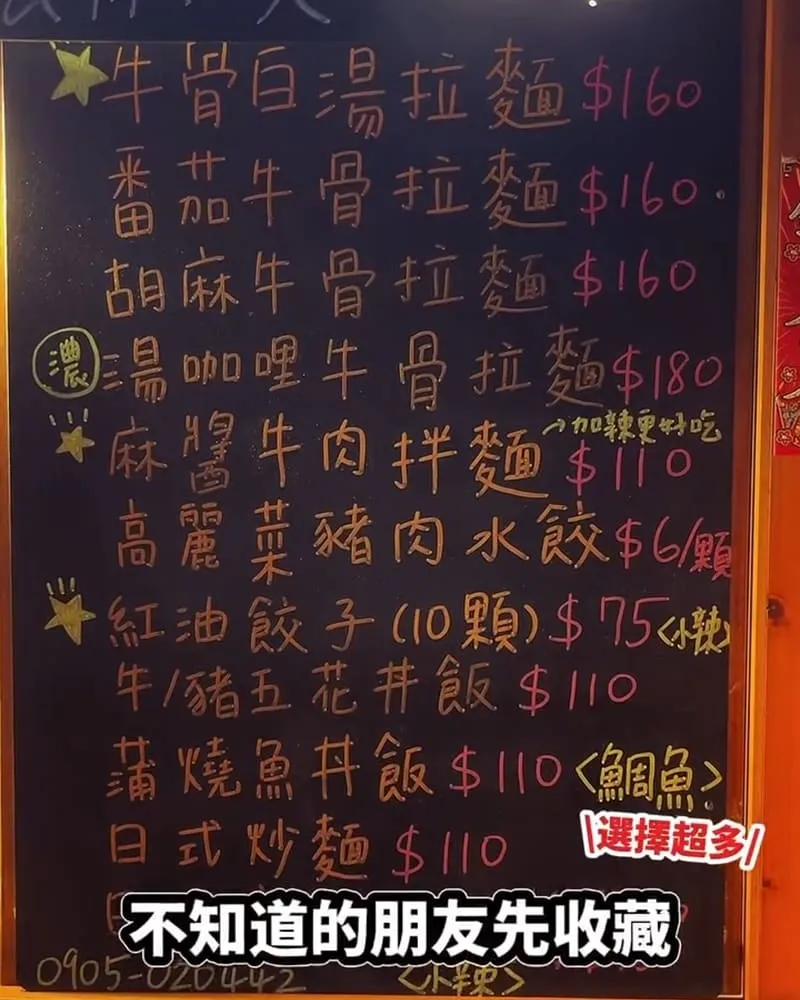 牛骨白湯拉麵 $160
番茄牛骨拉麵 $160
胡麻牛骨拉麵 $160
濃湯咖哩牛骨拉麵 $180
麻醬牛肉拌麵 $110 加辣更好吃
高麗菜豬肉水餃 $6/顆
紅油餃子(10顆) $75 <小辣>
牛/豬五花丼飯 $110
蒲燒魚丼飯 $110 <鯛魚>
日式炒麵 $110
\選擇超多/
不知道的朋友先收藏
0905-020442 <小辣>